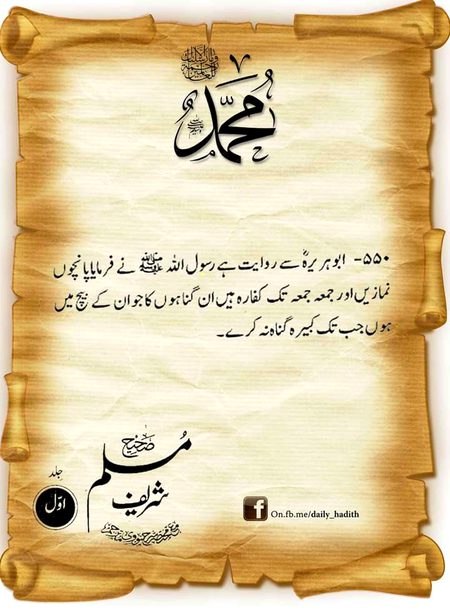 محمد
ﷺ
۵۵۰- ابوہریرہؓ سے روایت ہے رسول اللہ ﷺ نے فرمایا پانچوں
نمازیں اور جمعہ جمعہ تک کفارہ ہیں ان گناہوں کا جو ان کے بیچ میں
ہوں جب تک کبیرہ گناہ نہ کرے۔
صحیح
مسلم
شریف
جلد
اوّل
On.fb.me/daily_hadith